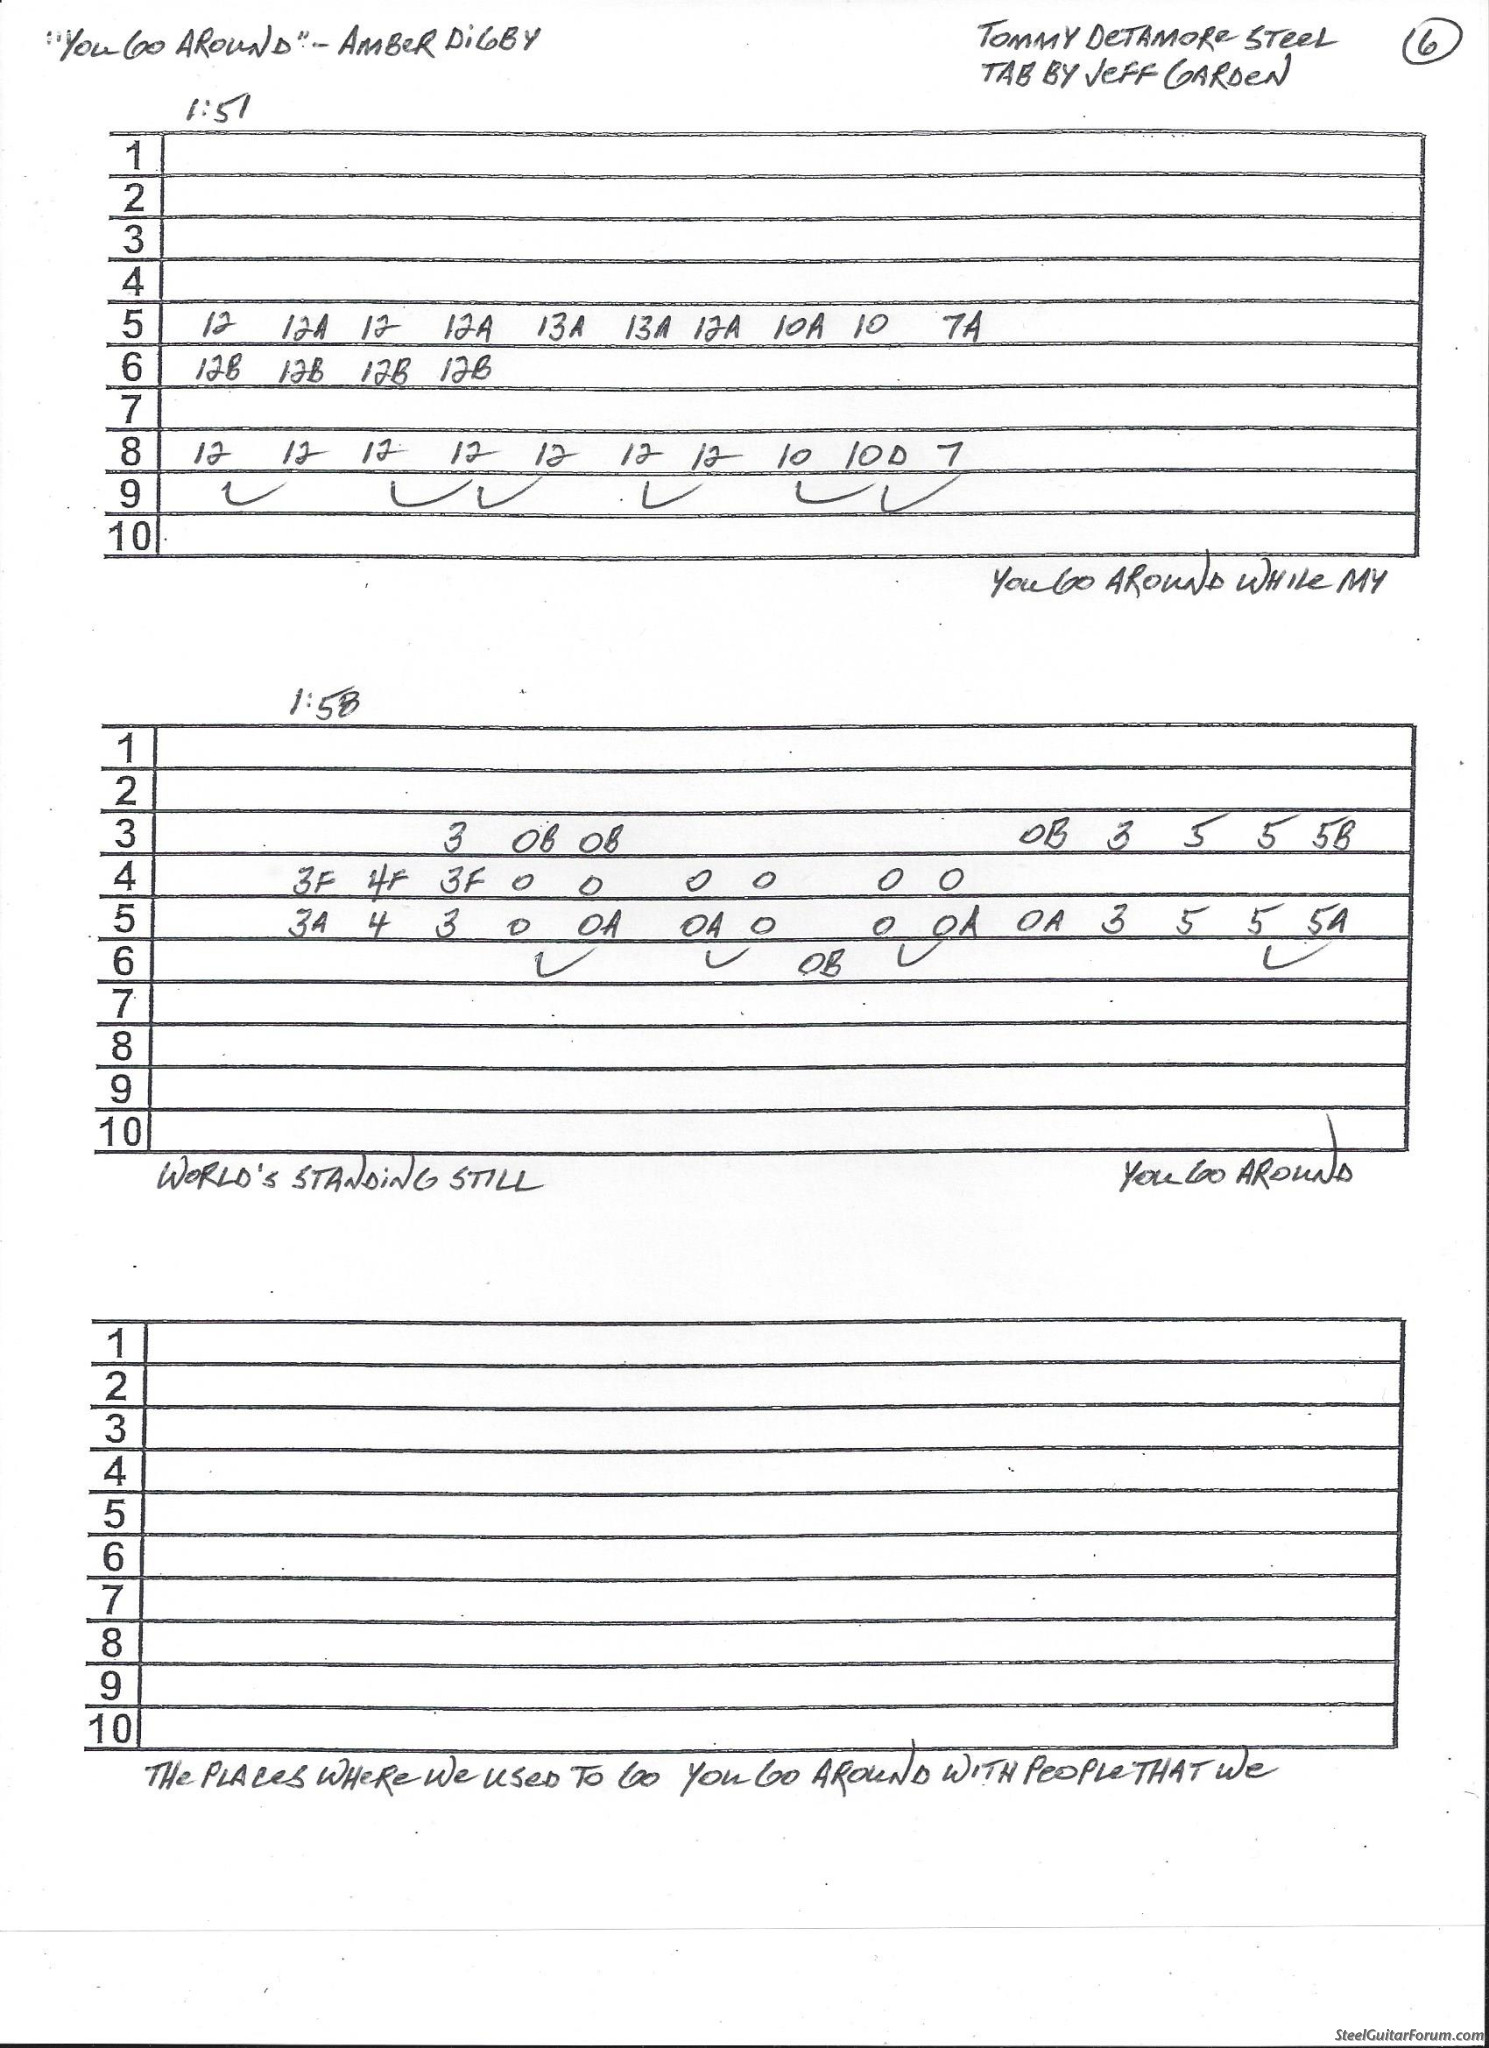 "You Go Around" - Amber Digby
Tommy Detamore Steel 6
Tab by Jeff Garden
1:51
1
2
3
4
5 12 12A 12 12A 13A 13A 12A 10A 10 7A
6 12B 12B 12B 12B
7
8 12 12 12 12 12 12 12 10 10D 7
9
10
You Go Around While My
1:58
1
2
3 3 0B 0B 0B 3 5 5 5B
4 3F 4F 3F 0 0 0 0 0 0
5 3A 4 3 0 0A 0A 0 0 0A 0A 3 5 5 5A
6 0B
7
8
9
10
World's Standing Still You Go Around
1
2
3
4
5
6
7
8
9
10
The Places Where We Used To Go You Go Around With People That We
SteelGuitarForum.com